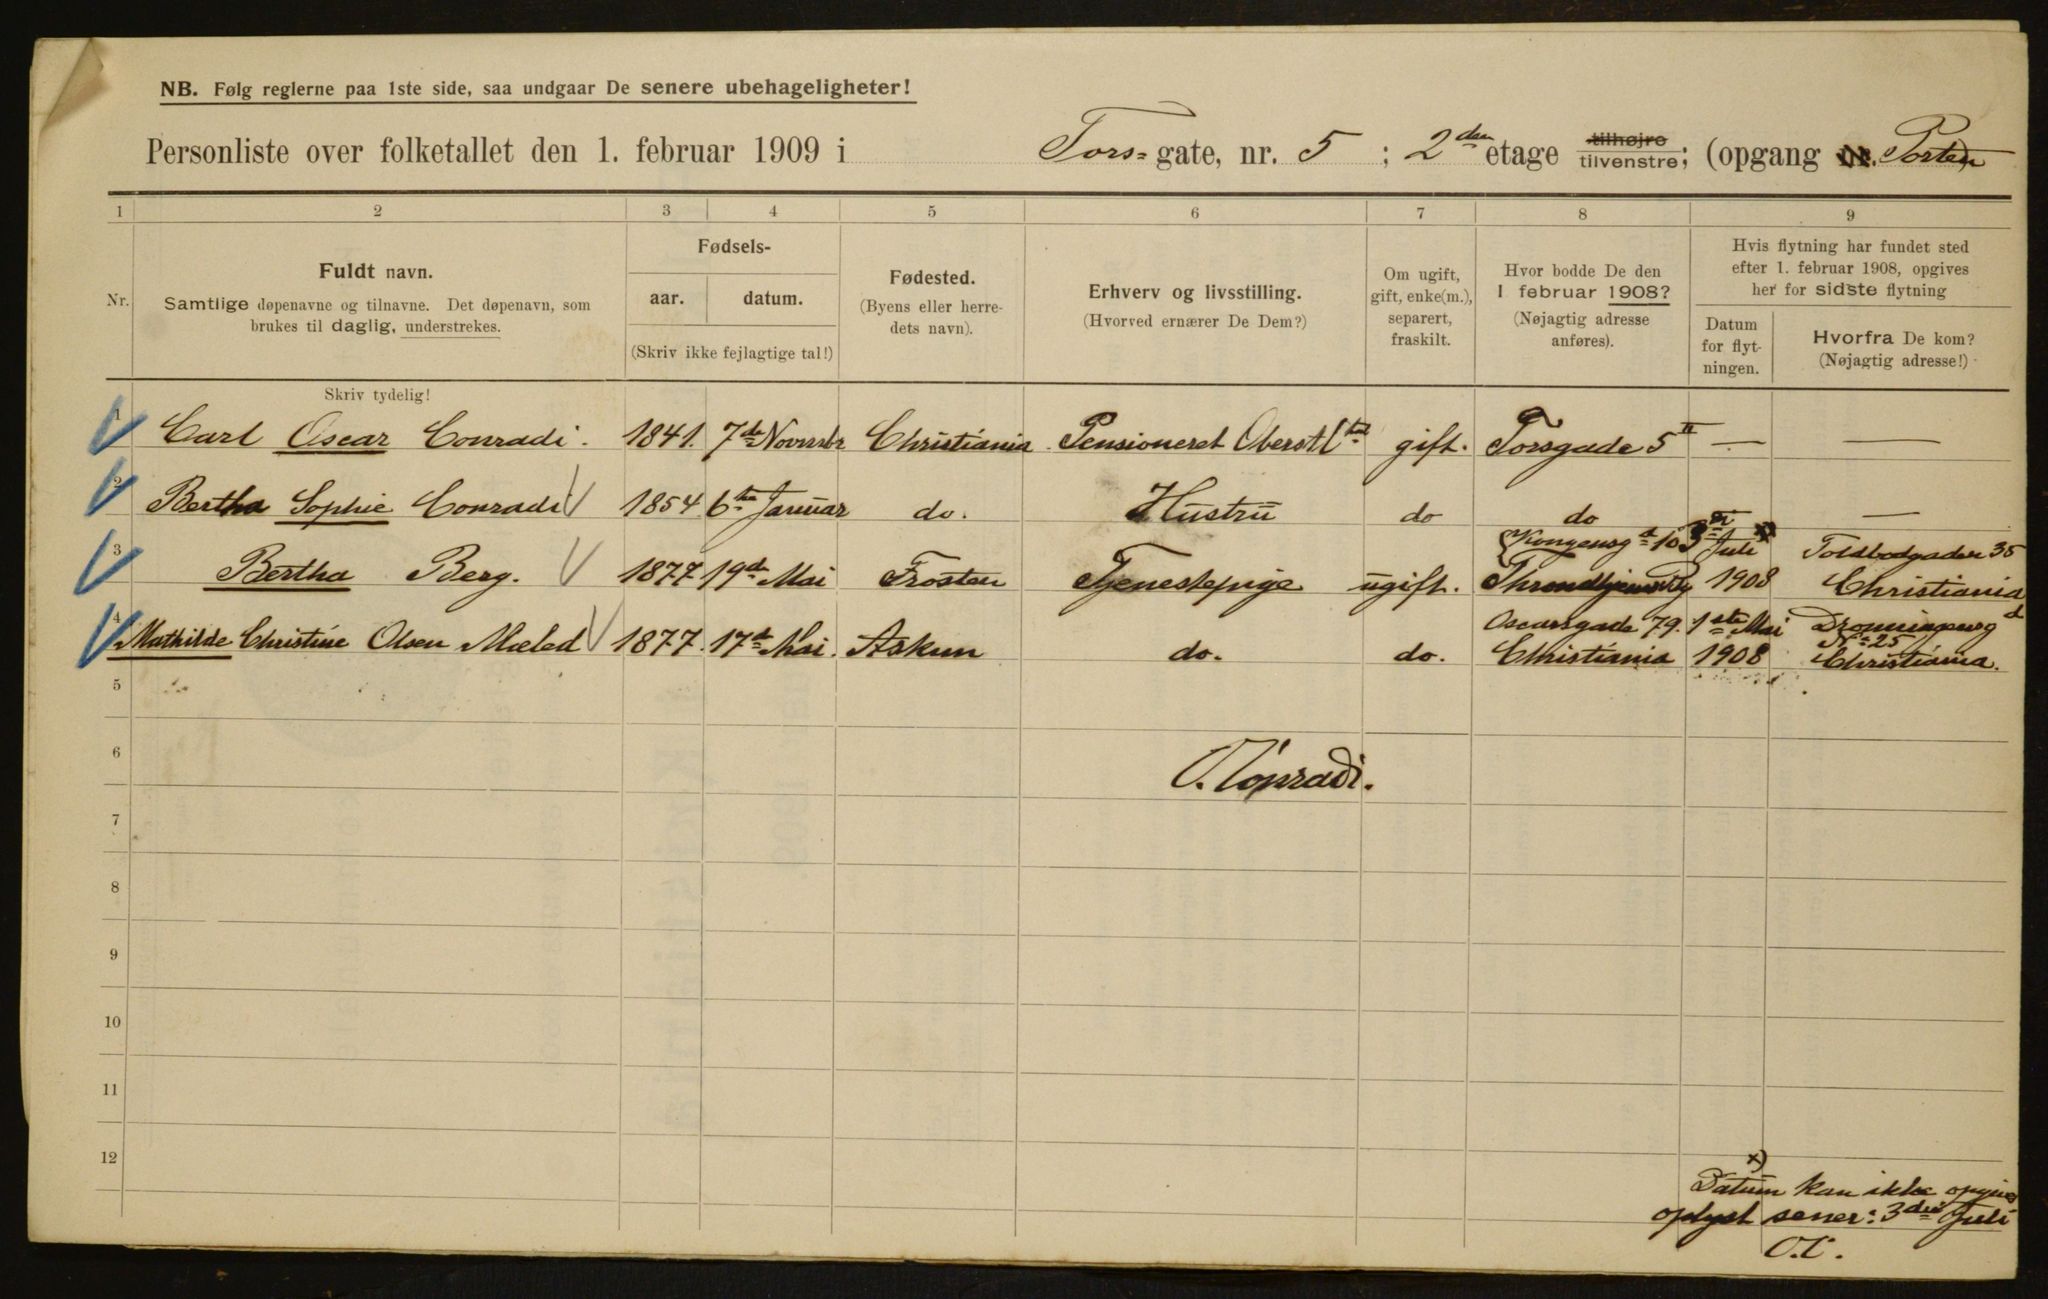 NB. Følg reglerne paa 1ste side, saa undgaar De senere ubehageligheter!
Personliste over folketallet den 1. februar 1909 i Tors=gate, nr. 5 ; 2den etage tilhøjre tilvenstre; (opgang nr. Porten)
1 2 3 4 5 6 7 8 9
Nr.
Fuldt navn.
Samtlige døpenavne og tilnavne. Det døpenavn, som
brukes til daglig, understrekes.
Fødsels-
aar. datum.
(Skriv ikke fejlagtige tal!)
Fødested.
(Byens eller herre-
dets navn).
Erhverv og livsstilling.
(Hvorved ernærer De Dem?)
Om ugift,
gift, enke(m.),
separert,
fraskilt.
Hvor bodde De den
1 februar 1908?
(Nøjagtig adresse
anføres).
Hvis flytning har fundet sted
efter 1. februar 1908, opgives
her for sidste flytning
Datum
for flyt-
ningen.
Hvorfra De kom?
(Nøjagtig adresse!)
Skriv tydelig!
1 Carl Oscar Conradi. 1841. 7de Novembr Christiania Pensioneret Oberstl gift. Torsgade 5 II — —
2 Bertha Sophie Conradi 1854 6te Januar do. Hustru do do —
3 Bertha Berg. 1877 19de Mai Frosten Tjenestepige ugift. Kongensgd 10 Throndhjem 3die Juli x) 1908 Toldbodgaden 35 Christiania
4 Mathilde Christine Olsen Mæled 1877. 17de Mai. Askum do. do. Oscarsgade 79. Christiania 1ste Mai 1908 Dronningensgd No 25 Christiania.
5
6
O. Conradi.
7
8
9
10
11
12
x)
Datum kan ikke opgives
oplyst sener: 3die Juli
O.C.